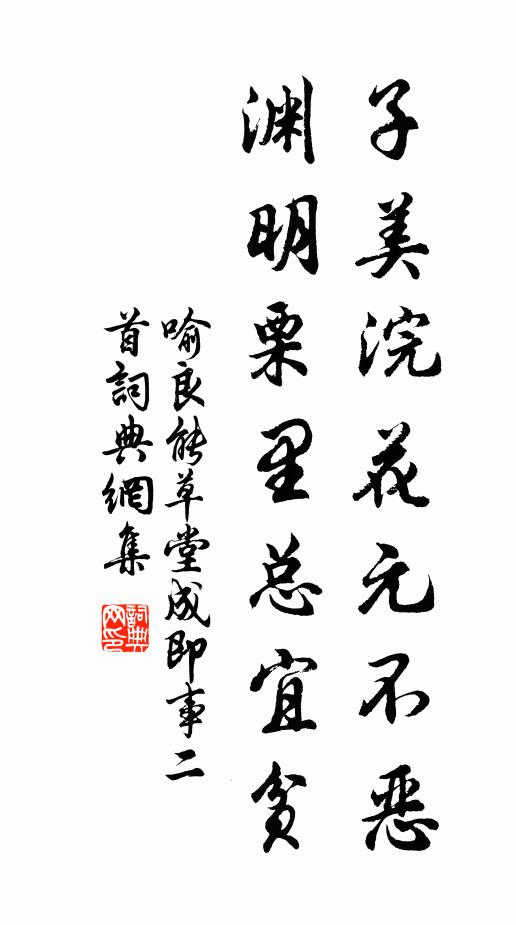 子美浣花元不恶
渊明栗里总宜贫
喻良能草堂成即事二
首詞典網集
詞典
网印